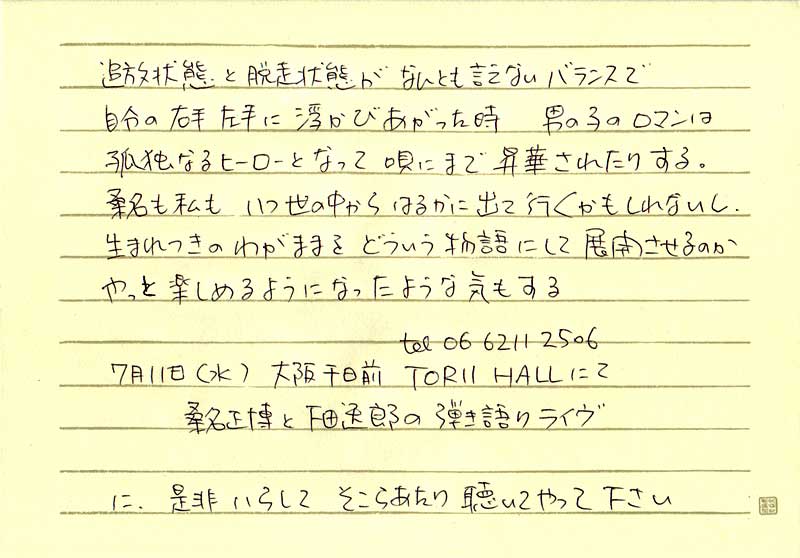 追放状態と脱走状態が なんとも言えないバランスで
自分の右手左手に浮かびあがった時 男の子のロマンは
孤独なるヒーローとなって 唄にまで昇華されたりする。
桑名も私も いつ世の中からはるかに出て行くかもしれないし.
生まれつきのわがままを どういう物語にして展開させるのか
やっと楽しめるようになったような気もする
tel 06 6211 2506
7月11日(水) 大阪千日前 TORII HALLにて
桑名正博と下田逸郎の弾き語りライヴ
に. 是非いらして そこらあたり聴いてやって下さい